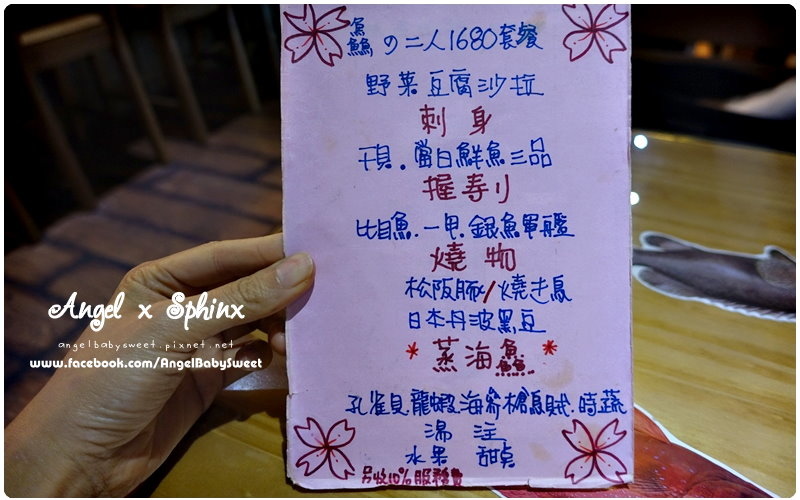 鱻の二人1680套餐
野菜豆腐沙拉
刺身
干貝.當日鮮魚三品
握寿り
比目魚.一甲.銀魚軍艦
燒物
松阪豚/燒
日本丹波黑豆
*蒸海鱻*
孔雀貝.龍蝦.海.時蔬
湯
水果 甜
另收10%服務費
Angel x Sphinx
angelbabysweet.pixnet.net
www.facebook.com/AngelBabySweet